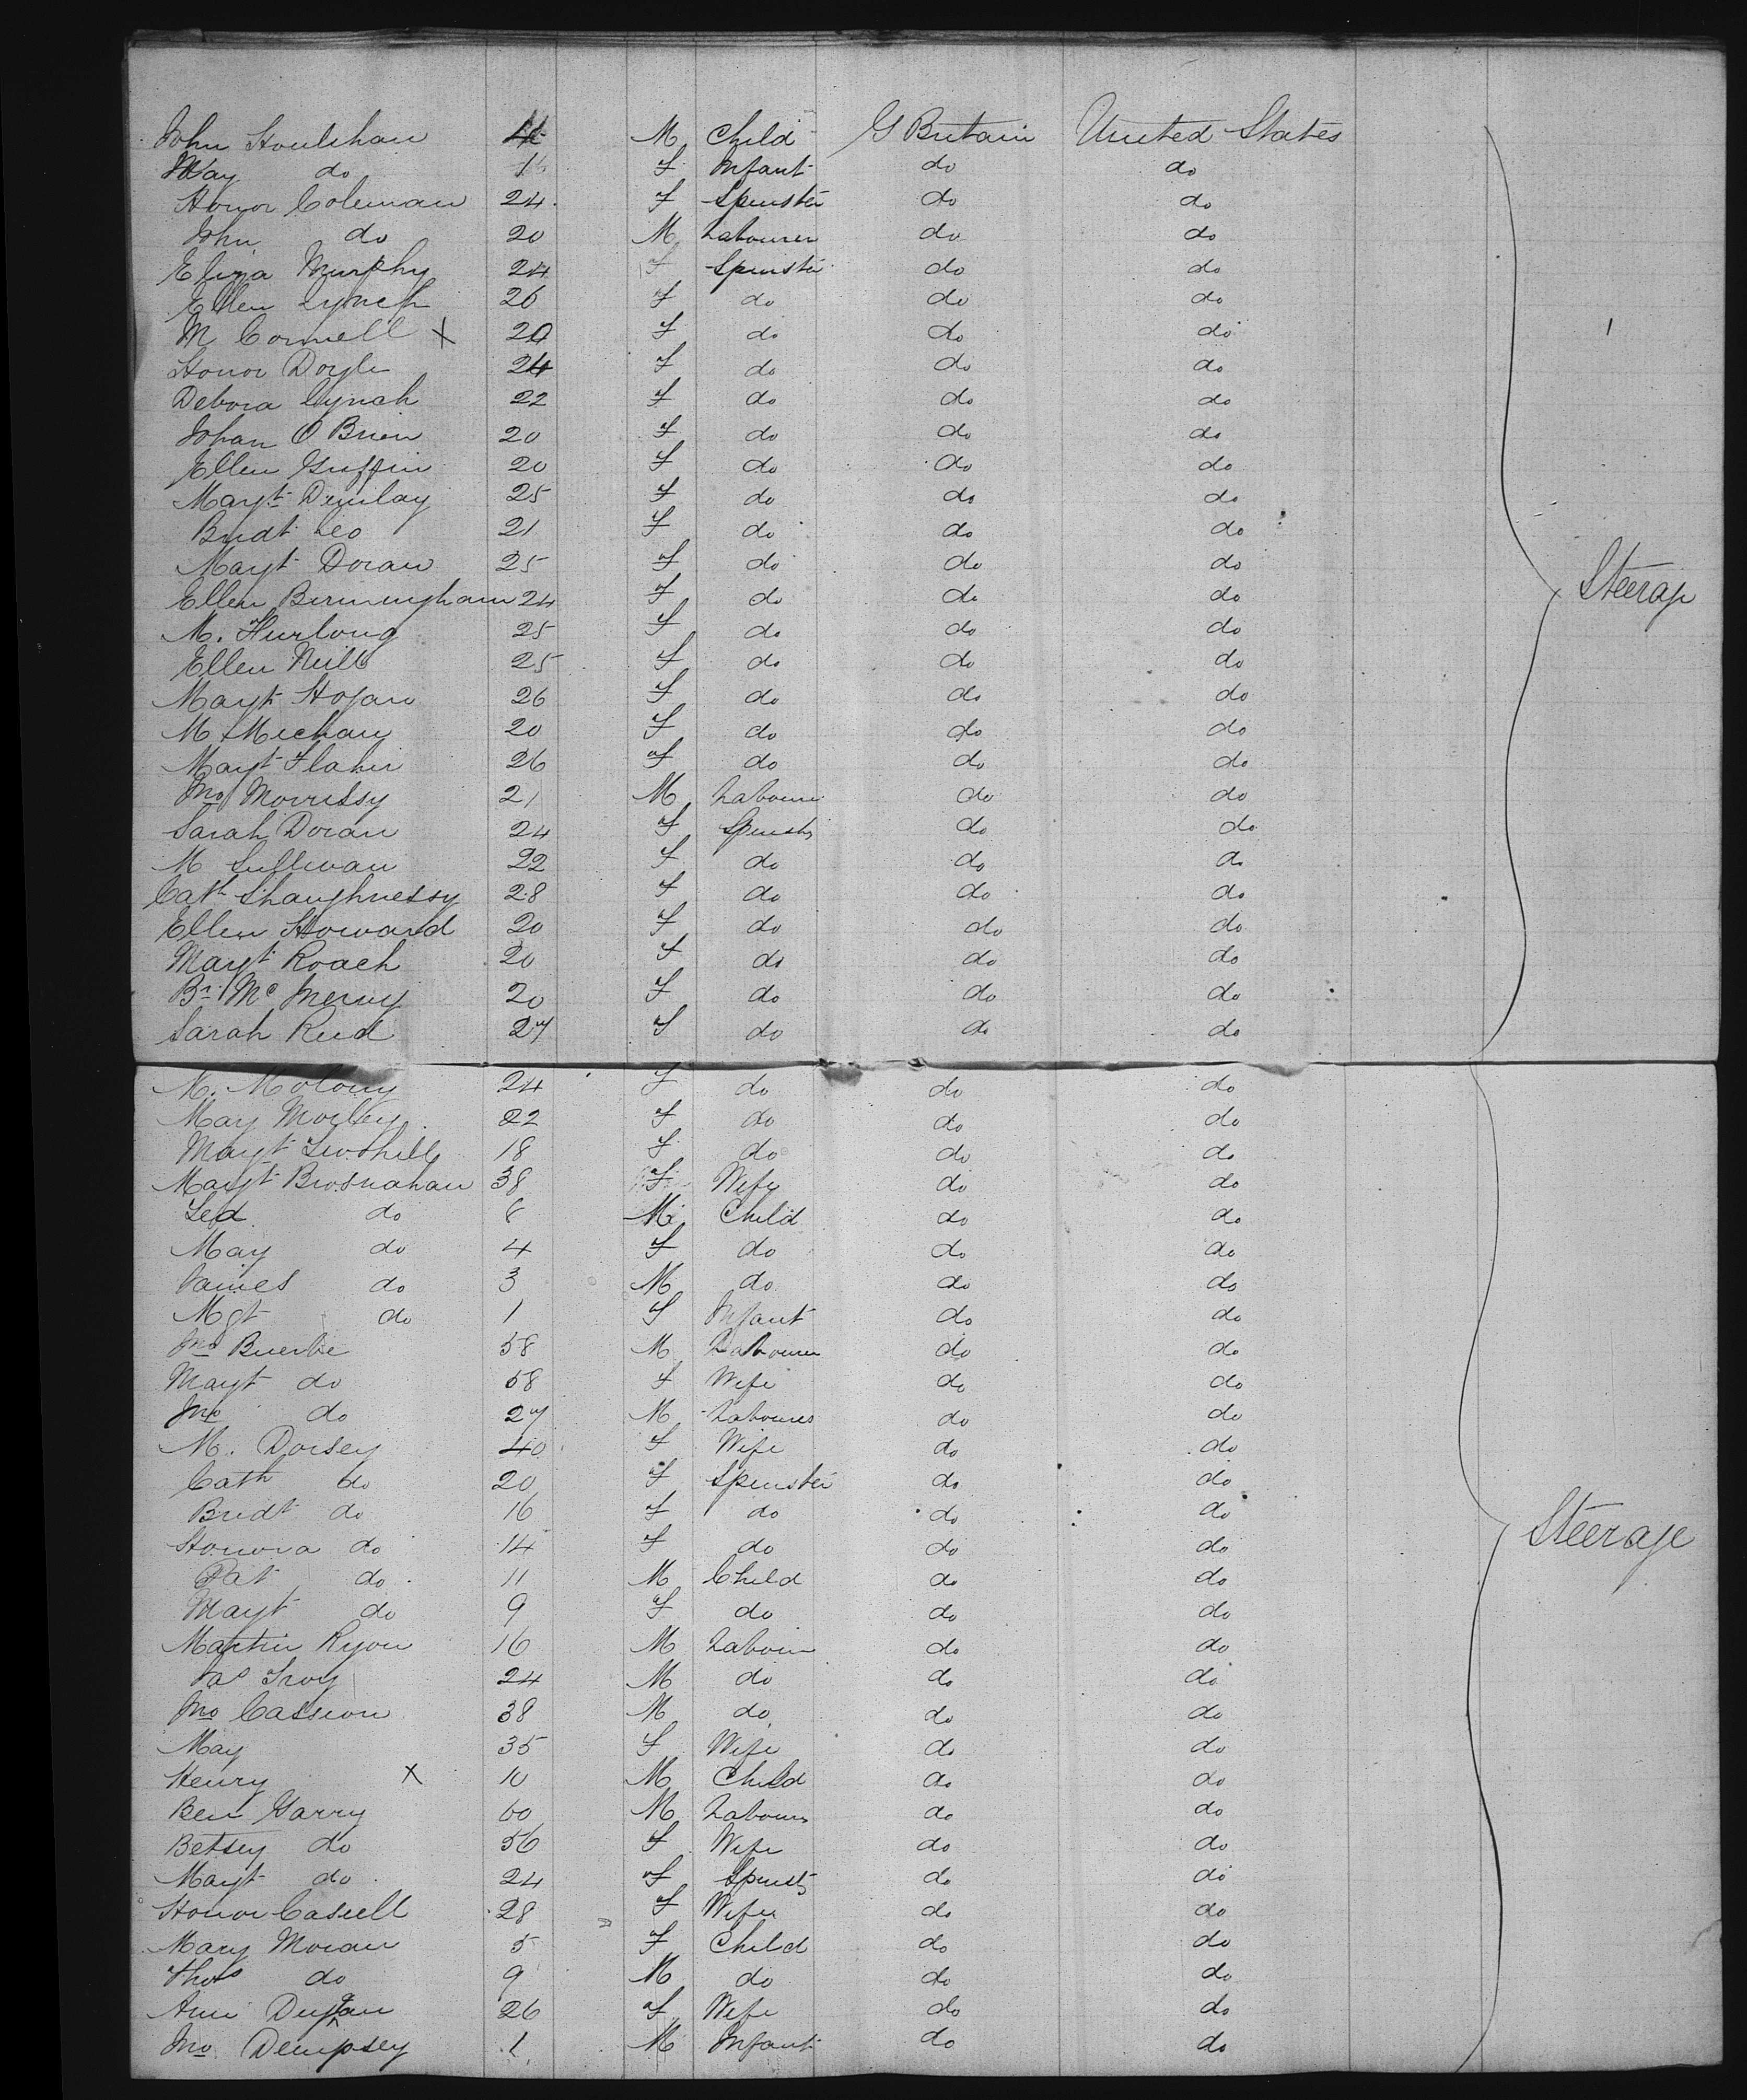 John Houlihan 4 M Child G Britain United States
May do 1 F Infant do do
Honor Coleman 24 F Spinster do do
John do 20 M Labourer do do
Eliza Murphy 24 F Spinster do do
Ellen Lynch 26 F do do do
M Connell X 20 F do do do
Honor Doyle 24 F do do do
Debora Lynch 22 F do do do
Johan O Brien 20 F do do do
Ellen Griffin 20 F do do do
Magt 25 F do do do
Bridt Leo 21 F do do do
Magt Doran 25 F do do do
Ellen Birmingham 24 F do do do
M. Hurlong 25 F do do do
Ellen Neill 25 F do do do
Magt Hogan 26 F do do do
M Mechan 20 F do do do
Magt Flahir 26 F do do do
Jno Morrissy 21 M Labourer do do
Sarah Doran 24 F Spinstr do do
M Sullivan 22 F do do do
Cath Shaughnessy 28 F do do do
Ellen Howard 20 F do do do
Magt Roach 20 F do do do
Br Mc Inerny 20 F do do do
Sarah Reid 27 F do do do
Steerage
M. Molony 24 F do do do
May Morley 22 F do do do
Magt 18 F do do do
Magt Brosnahan 38 F Wife do do
Ted do 6 M Child do do
May do 4 F do do do
James do 3 M do do do
Mgt do 1 F Infant do do
Jno Buerke 58 M Labourer do do
Magt do 58 F Wife do do
Jno do 27 M Labourer do do
M. Dorsey 40 F Wife do do
Cath do 20 F Spinster do do
Bridt do 16 F do do do
Honora do 14 F do do do
Pat do 11 M Child do do
Magt do 9 F do do do
Martin Ryon 16 M Labour do do
Jas Troy 24 M do do do
Jno Cassion 38 M do do do
May 35 F Wife do do
Henry X 10 M Child do do
Ben Garry 60 M Labourer do do
Betsey do 56 F Wife do do
Magt do 24 F Spinstr do do
Honor Casell 28 F Wife do do
Mary Moran 5 F Child do do
Thos do 9 M do do do
Ann Dugan 26 F Wife do do
Jno Dempsey 1 M Infant do do
Steerage